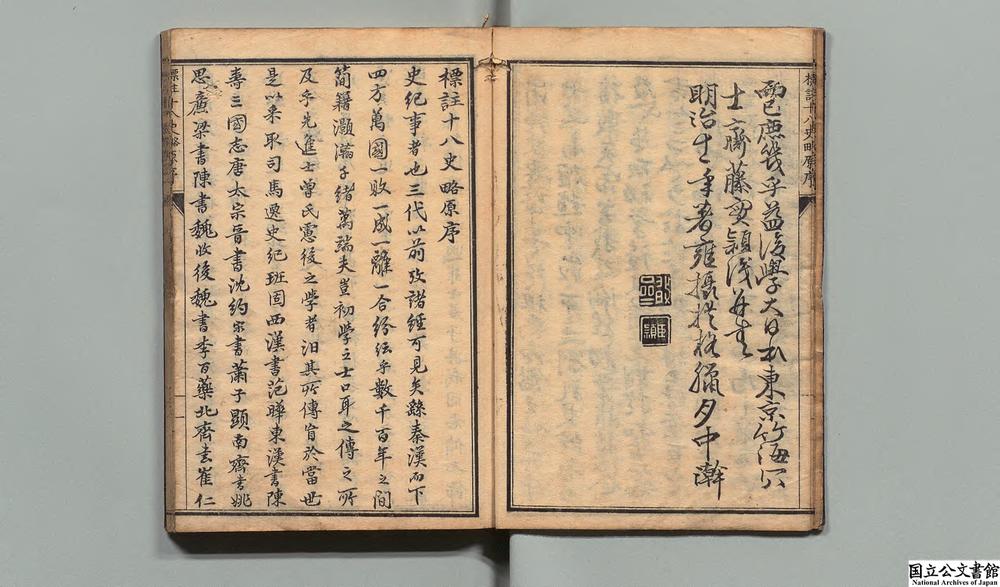 標註十八史略原序
已庶幾乎益後學大日本東京竹海
士齋藤實頴
明治十一年著雍攝提格臘月中澣
標註十八史略原序
史紀事者也三代以前攷諸經可見矣繇秦漢而下
四方萬國一敗一成一離一合紛紜乎數千百年之間
簡籍灝瀚千緒萬端夫豈初學之士口耳之傳之所
及乎先進士曾氏憲後之學者汨其所傳盲於當世
是以采取司馬遷史紀班固西漢書范曄東漢書陳
壽三國志唐太宗晉書沈約宋書蕭子顯南齊書姚
思廉梁書陳書魏收後魏書李百藥北齊書崔仁
標註十八史略原序
国立公文書館
National Archives of Japan